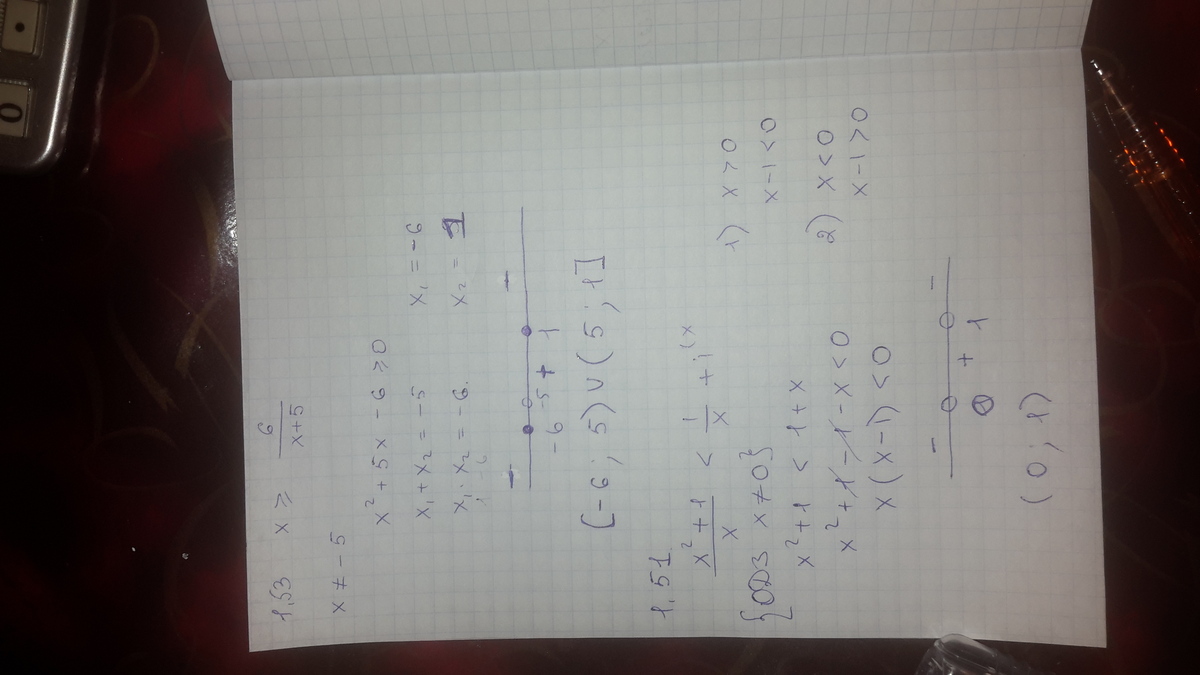 1,53 x ≥ 6/(x+5)
x ≠ -5
x² + 5x - 6 ≥ 0
x₁ + x₂ = -5 x₁ = -6
x₁ · x₂ = -6. x₂ = 1
- -
-6 -5 + 1
[-6; 5) ∪ (5; 1]
1,51.
(x² + 1)/x < 1/x + 1 | · x
{ОДЗ x ≠ 0}
x² + 1 < 1 + x
x² + 1 - 1 - x < 0
x(x - 1) < 0
1) x > 0
x - 1 < 0
2) x < 0
x - 1 > 0
- -
0 + 1
(0; 1)
0